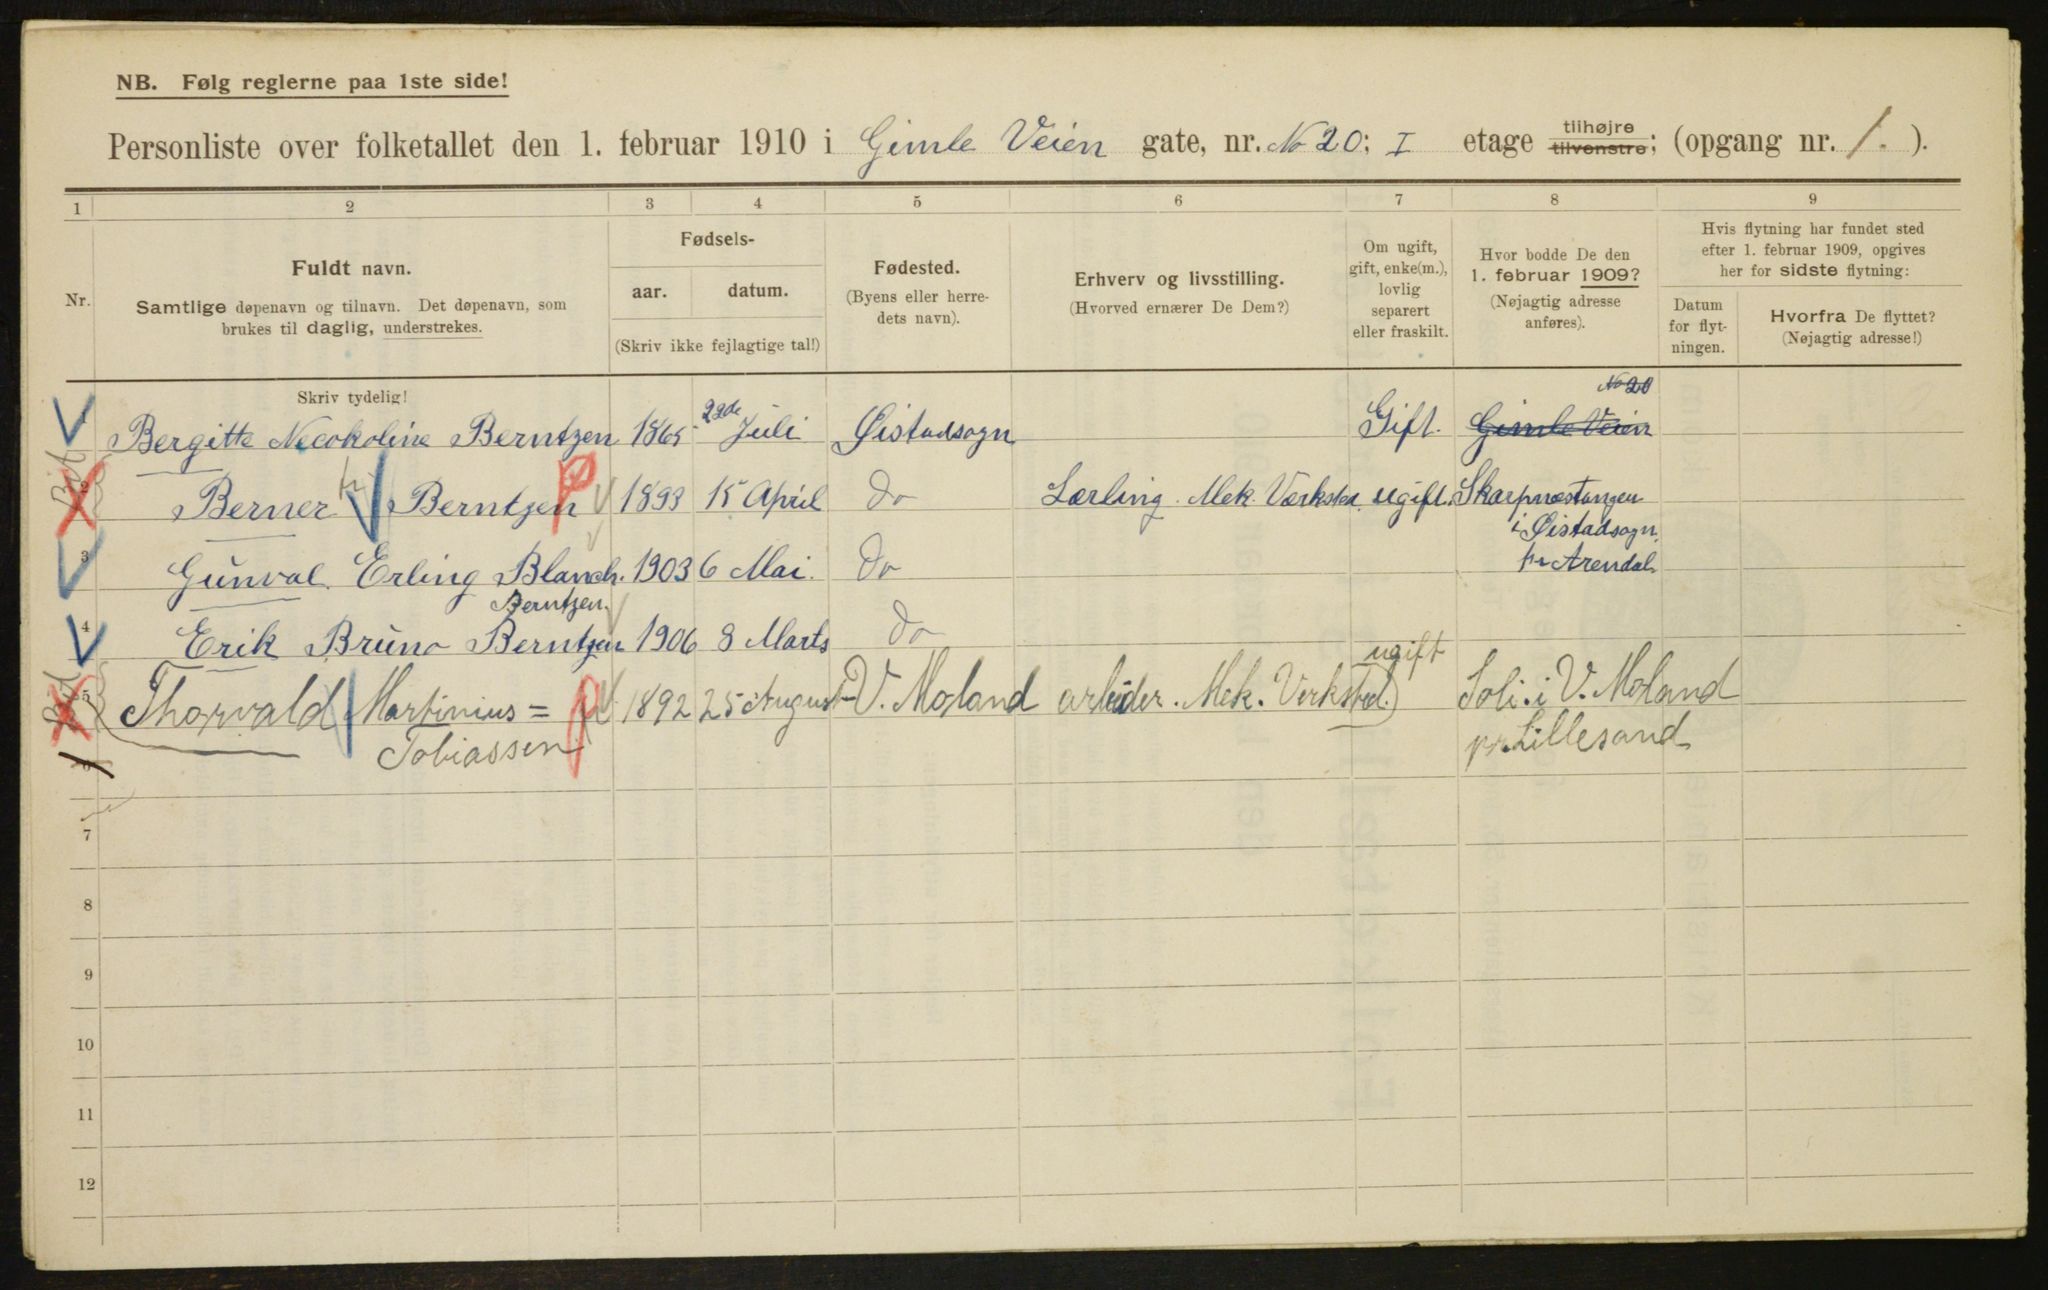 NB. Følg reglerne paa 1ste side!
Personliste over folketallet den 1. februar 1910 i Gimle Veien gate, nr. No 20; I etage tilhøjre tilvenstre; (opgang nr. 1. ).
1 2 3 4 5 6 7 8 9
Nr.
Fuldt navn.
Samtlige døpenavn og tilnavn. Det døpenavn, som
brukes til daglig, understrekes.
Fødsels-
aar. datum.
(Skriv ikke fejlagtige tal!)
Fødested.
(Byens eller herre-
dets navn).
Erhverv og livsstilling.
(Hvorved ernærer De Dem?)
Om ugift,
gift, enke(m.),
lovlig
separert
eller fraskilt.
Hvor bodde De den
1. februar 1909?
(Nøjagtig adresse
anføres).
Hvis flytning har fundet sted
efter 1. februar 1909, opgives
her for sidste flytning:
Datum
for flyt-
ningen.
Hvorfra De flyttet?
(Nøjagtig adresse!)
Skriv tydelig!
No 20
1 Bergitte Berntzen 1865 22de Juli Øistadsogn Gift. Gimle Veien
2 Berner Berntzen 1893 15 April do Lærling. Mek. Værksted ugift. Skarpnæstangen
i Øistadsogn
pr Arendal
3 Gunval Erling Blanch. 1903 6 Mai. do
Berntzen.
4 Erik Bruno Berntzen 1906 8 Marts do
5 Thorvald Martinius = 1892 25 August V. Moland arbeider. Mek. Verksted. ugift Soli i V. Moland
Tobiassen pr Lillesand
6
7
8
9
10
11
12